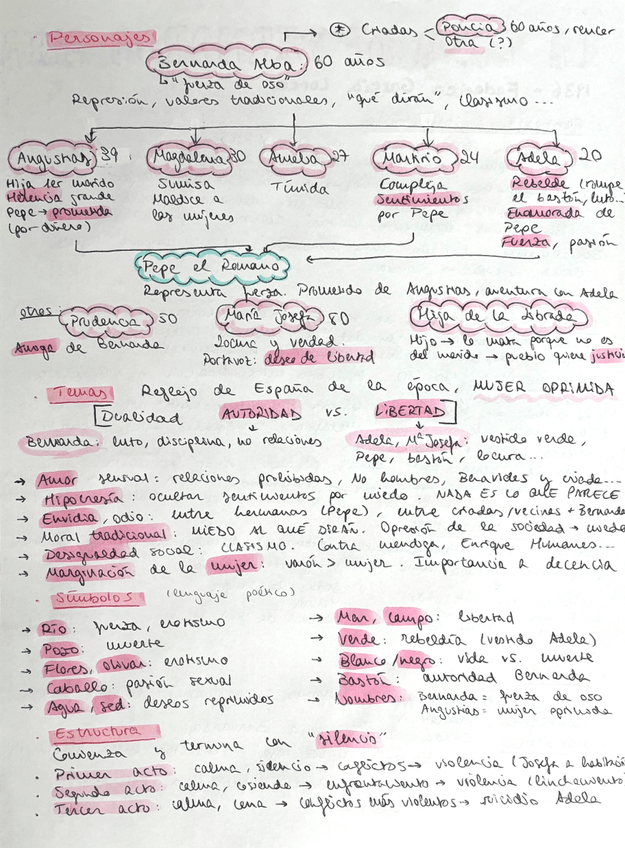 Personajes
* Criadas < Poncia: 60 años, rencor
Otra (?)
Bernarda Alba: 60 años
↳ "fuerza de oso"
Represión, valores tradicionales, "qué dirán", clasismo...
Angustias 39 Magdalena 30 Amelia 27 Martirio 24 Adela 20
Hija 1er marido Sumisa Tímida Compleja Rebelde (rompe
Herencia grande Maldice a Sentimientos el bastón, luto...
Pepe → prometida las mujeres por Pepe Enamorada de
(por dinero) Pepe
Fuerza, pasión
Pepe el Romano
Representa fuerza. Prometido de Angustias, aventura con Adela
otros: Prudencia 50 María Josefa 80 Hija de la Librada
Amiga de Bernarda locura y verdad. Hijo → lo mata porque no es
Portavoz: deseo de libertad del marido → pueblo quiere justici
Temas Reflejo de España de la época, MUJER OPRIMIDA
[Dualidad AUTORIDAD vs. LIBERTAD]
Bernarda: luto, disciplina, no relaciones Adela, Mª Josefa: vestido verde,
Pepe, bastón, locura...
→ Amor sensual: relaciones prohibidas, No hombres, Benavides y criada...
→ Hipocresía: ocultar sentimientos por miedo. NADA ES LO QUE PARECE
→ Envidia, odio: entre hermanas (Pepe), entre criadas/vecinas + Bernarda
→ Moral tradicional: MIEDO AL QUÉ DIRÁN. Opresión de la sociedad → miedo
→ Desigualdad social: CLASISMO. Contra mendiga, Enrique Humanes...
→ Marginación de la mujer: varón > mujer. Importancia a decencia
Símbolos (lenguaje poético)
→ Río: fuerza, erotismo → Mar, campo: libertad
→ Pozo: muerte → Verde: rebeldía (vestido Adela)
→ Flores, olivar: erotismo → Blanco/negro: vida vs. muerte
→ Caballo: pasión sexual → Bastón: autoridad Bernarda
→ Agua, sed: deseos reprimidos → Nombres: Bernarda = fuerza de oso
Angustias = mujer oprimida
Estructura
Comienza y termina con "silencio"
Primer acto: calma, silencio → conflictos → violencia (Josefa a habitación
Segundo acto: calma, cosiendo → enfrentamiento → violencia (linchamiento)
Tercer acto: calma, cena → conflictos más violentos → suicidio Adela